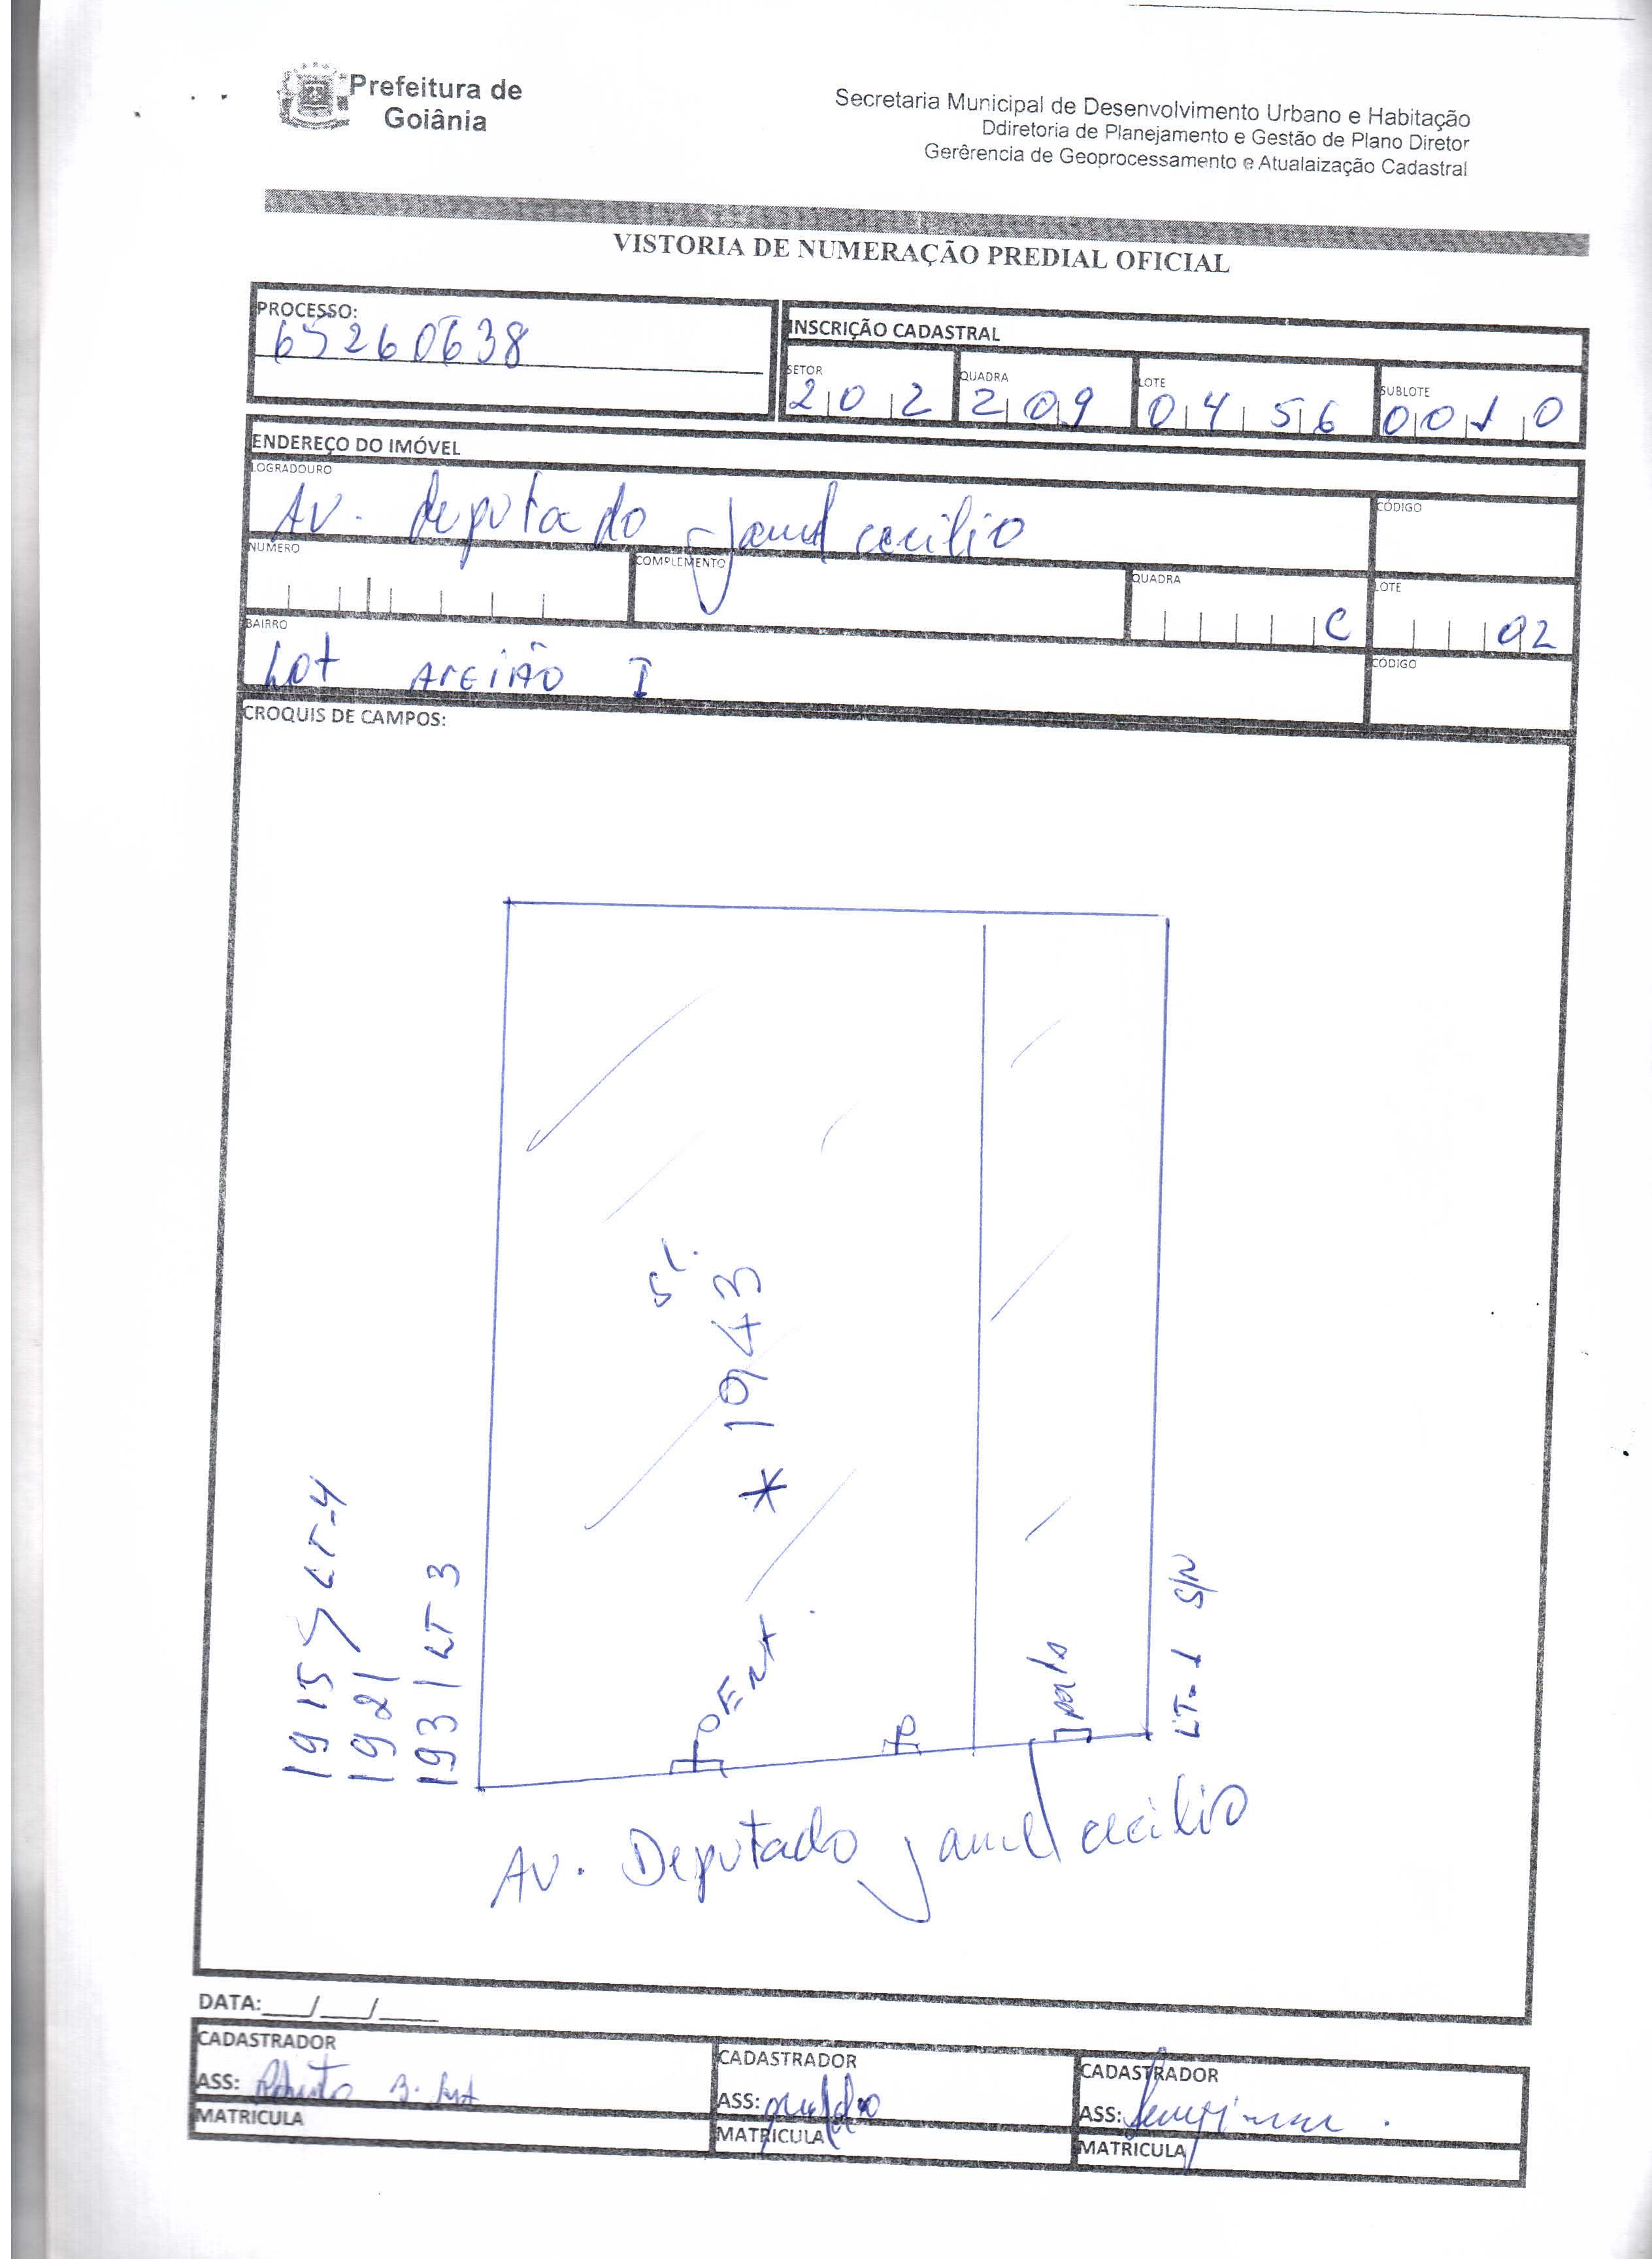 Prefeitura de
Goiânia
Secretaria Municipal de Desenvolvimento Urbano e Habitação
Ddiretoria de Planejamento e Gestão de Plano Diretor
Gerêrencia de Geoprocessamento e Atualaização Cadastral
VISTORIA DE NUMERAÇÃO PREDIAL OFICIAL
PROCESSO:
65260638
INSCRIÇÃO CADASTRAL
SETOR QUADRA LOTE SUBLOTE
202 209 0456 0010
ENDEREÇO DO IMÓVEL
LOGRADOURO CÓDIGO
Av. deputado Jamel cecilio
NUMERO COMPLEMENTO QUADRA LOTE
C 02
BAIRRO CÓDIGO
Lot Areião I
CROQUIS DE CAMPOS:
* 1943
1915 > LT-4
1921
1931 LT 3
Ent
LT-1 S/N
Av. Deputado Jamel cecilio
DATA:___/___/____
CADASTRADOR CADASTRADOR CADASTRADOR
ASS: ASS: ASS:
MATRICULA MATRICULA MATRICULA